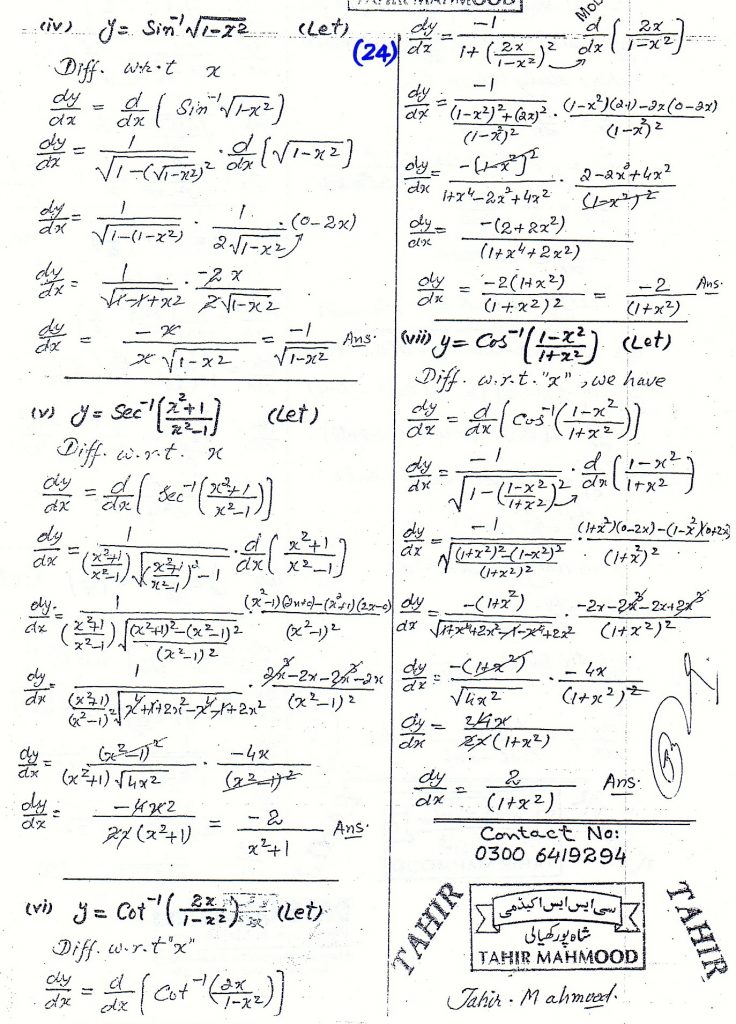 TAHIR MAHMOOD
(24)
(iv) y = Sin⁻¹ √1-x² (Let)
Diff. w.r.t x
dy/dx = d/dx [Sin⁻¹ √1-x²]
dy/dx = 1/√1-(√1-x²)² · d/dx [√1-x²]
dy/dx = 1/√1-(1-x²) · 1/2√1-x² · (0-2x)
dy/dx = 1/√1-1+x² · -2x/2√1-x²
dy/dx = -x/x√1-x² = -1/√1-x² Ans.
(v) y = Sec⁻¹ [x²+1/x²-1] (Let)
Diff. w.r.t. x
dy/dx = d/dx [Sec⁻¹ (x²+1/x²-1)]
dy/dx = 1/(x²+1/x²-1)√(x²+1/x²-1)²-1 · d/dx [x²+1/x²-1]
dy/dx = 1/(x²+1/x²-1)√(x²+1)²-(x²-1)²/(x²-1)² · (x²-1)(2x+0)-(x²+1)(2x-0)/(x²-1)²
dy/dx = 1/(x²+1)/(x²-1)²√x⁴+1+2x²-x⁴-1+2x² · 2x³-2x-2x³-2x/(x²-1)²
dy/dx = (x²-1)²/(x²+1)√4x² · -4x/(x²-1)²
dy/dx = -4x2/2x(x²+1) = -2/x²+1 Ans.
(vi) y = Cot⁻¹ (2x/1-x²) (Let)
Diff. w.r.t "x"
dy/dx = d/dx [Cot⁻¹ (2x/1-x²)]
dy/dx = -1/1+(2x/1-x²)² d/dx [2x/1-x²]
dy/dx = -1/(1-x²)²+(2x)²/(1-x²)² · (1-x²)(2·1)-2x(0-2x)/(1-x²)²
dy/dx = -[1-x²]²/1+x⁴-2x²+4x² · 2-2x²+4x²/(1-x²)²
dy/dx = -(2+2x²)/(1+x⁴+2x²)
dy/dx = -2(1+x²)/(1+x²)2 = -2/(1+x²) Ans.
(vii) y = Cos⁻¹ (1-x²/1+x²) (Let)
Diff. w.r.t. "x", we have
dy/dx = d/dx [Cos⁻¹(1-x²/1+x²)]
dy/dx = -1/√1-(1-x²/1+x²)² · d/dx [1-x²/1+x²]
dy/dx = -1/√(1+x²)²-(1-x²)²/(1+x²)² · (1+x²)(0-2x)-(1-x²)(0+2x)/(1+x²)²
dy/dx = -(1+x²)/√1+x⁴+2x²-1-x⁴+2x² · -2x-2x³-2x+2x³/(1+x²)²
dy/dx = -(1+x²)/√4x² · -4x/(1+x²)2
dy/dx = 24x/2x(1+x²)
dy/dx = 2/(1+x²) Ans.
Contact No:
0300 6419294
TAHIR
سی ایس ایس اکیڈمی
شاہ پور کھیالی
TAHIR MAHMOOD
TAHIR
Tahir. Mahmood.